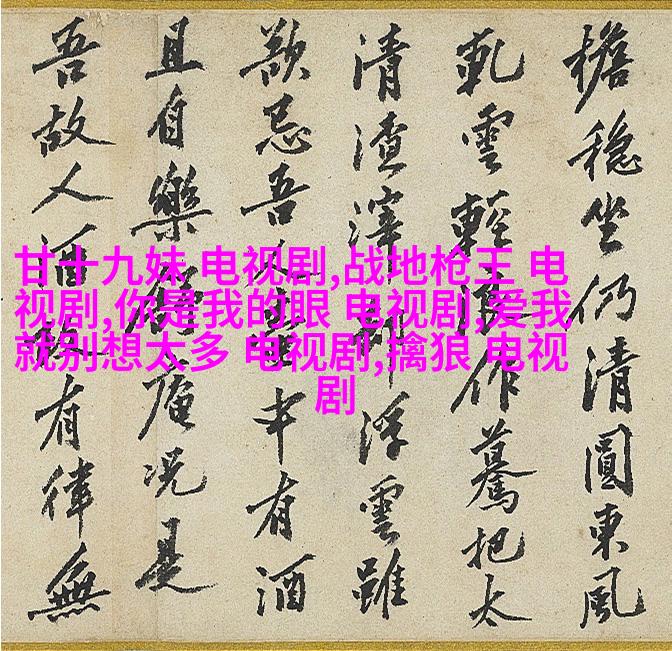 甘十九妹 电视剧,战地枪王 电
视剧,你是我的眼 电视剧,爱我
就别想太多 电视剧,擒狼 电视
剧
檐穩坐仍清圓東風
雲輕作驀把太
清渣滓浮雲雖
忌吾中有酒
且自樂庵况是
吾故人酒有律無